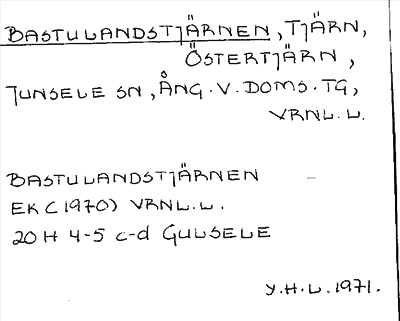 BASTULANDSTJÄRNEN, TJÄRN,
ÖSTERTJÄRN,
JUNSELE SN, ÅNG. V. DOMS. TG,
VRNL. L.
BASTULANDSTJÄRNEN
EK (1970) VRNL. L.
20 H 4-5 c-d GULSELE
Y. H. L. 1971.